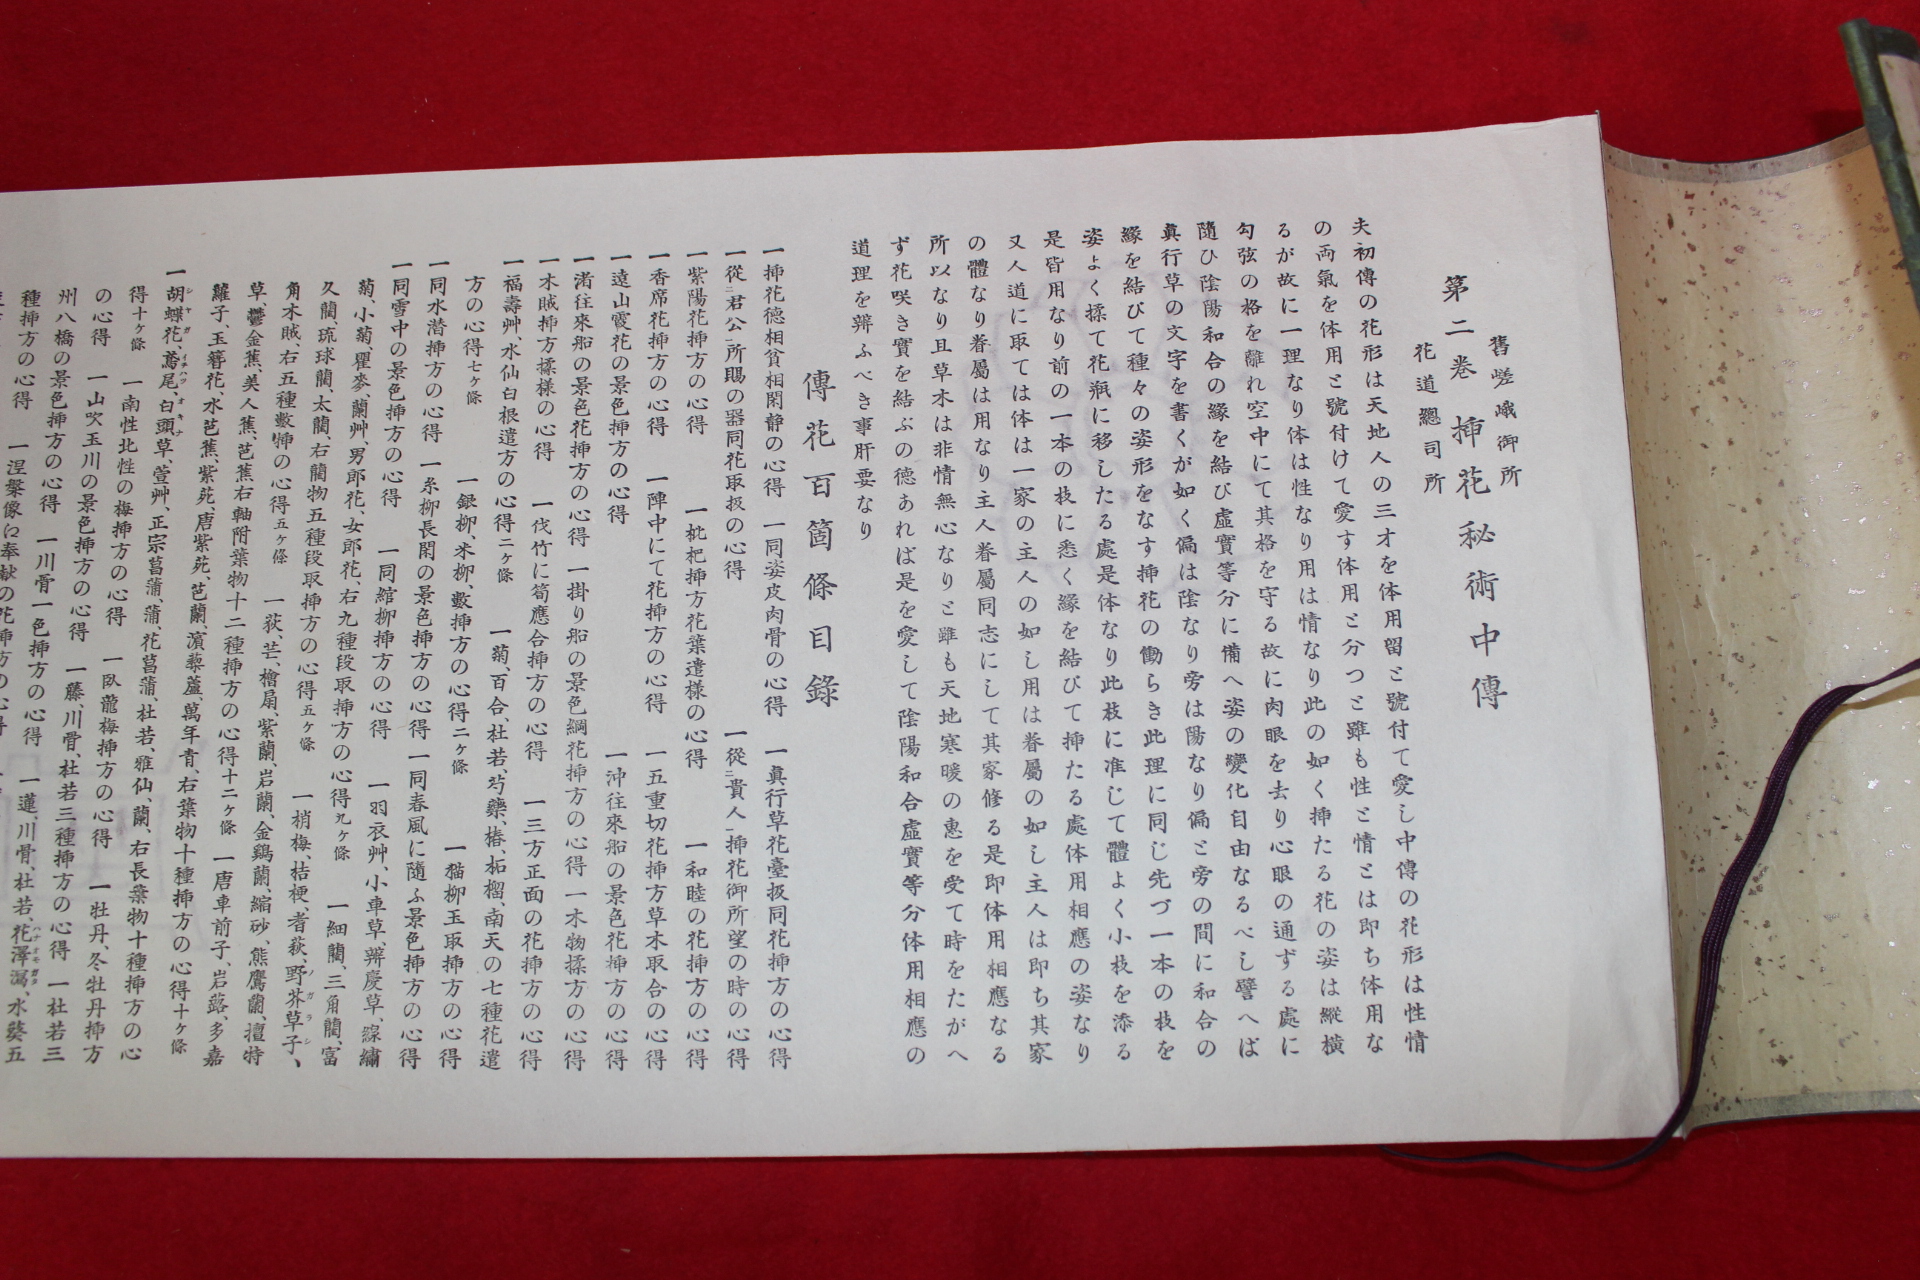 舊嵯峨御所
花道總司所
第二卷 挿花秘術中傳
夫初傳の花形は天地人の三才を体用留と號付て愛し中傳の花形は性情
の両氣を体用と號付けて愛す体用と分つと雖も性と情とは即ち体用な
るが故に一理なり体は性なり用は情なり此の如く挿たる花の姿は縱横
勾弦の格を離れ空中にて其格を守る故に肉眼を去り心眼の通ずる處に
隨ひ陰陽和合の緣を結び虛實等分に備へ姿の變化自由なるべし譬へば
眞行草の文字を書くが如く偏は陰なり旁は陽なり偏と旁の間に和合の
緣を結びて種々の姿形をなす挿花の働らき此理に同じ先づ一本の枝を
姿よく揉て花瓶に移したる處是体なり此枝に准じて體よく小枝を添る
是皆用なり前の一本の枝に悉く緣を結びて挿たる處体用相應の姿なり
又人道に取ては体は一家の主人の如し用は眷屬の如し主人は即ち其家
の體なり眷屬は用なり主人眷屬同志にして其家修る是即体用相應なる
所以なり且草木は非情無心なりと雖も天地寒暖の惠を受て時をたがへ
ず花咲き實を結ぶの德あれば是を愛して陰陽和合虛實等分体用相應の
道理を辨ふべき事肝要なり
傳花百箇條目錄
一挿花德相貧相閑静の心得 一同姿皮肉骨の心得 一眞行草花臺扱同花挿方の心得
一從二君公一所賜の器同花取扱の心得 一從二貴人一挿花御所望の時の心得
一紫陽花挿方の心得 一枇杷挿方花葉遣様の心得 一和睦の花挿方の心得
一香席花挿方の心得 一陣中にて花挿方の心得 一五重切花挿方草木取合の心得
一遠山霞花の景色挿方の心得 一沖往來船の景色花挿方の心得
一渚往來船の景色花挿方の心得 一掛り船の景色綱花挿方の心得 一木物揉方の心得
一木賊挿方揉様の心得 一伐竹に筍應合挿方の心得 一三方正面の花挿方の心得
一福壽艸、水仙白根遣方の心得二ヶ條 一菊、百合、杜若、芍藥、椿、柘榴、南天の七種花遣
方の心得七ヶ條 一銀柳、木柳、數挿方の心得二ヶ條 一猫柳玉取挿方の心得
一同水潜挿方の心得 一糸柳長閑の景色挿方の心得 一同春風に隨ふ景色挿方の心得
一同雪中の景色挿方の心得 一同綰柳挿方の心得 一羽衣艸、小車草、辨慶草、線繡
菊、小菊、瞿麥、蘭艸、男郎花、女郎花、右九種段取挿方の心得九ヶ條 一細藺、三角藺、富
久藺、琉球藺、太藺、右藺物五種段取挿方の心得五ヶ條 一梢梅、桔梗、耆萩、野芥草子、
角木賊、右五種數挿の心得五ヶ條 一荻、芒、檜扇、紫蘭、岩蘭、金鷄蘭、縮砂、熊鷹蘭、擅特
草、鬱金蕉、美人蕉、芭蕉右軸附葉物十二種挿方の心得十二ヶ條 一唐車前子、岩蕗、多嘉
蘿子、玉簪花、水芭蕉、紫苑、唐紫苑、芭蘭、濱藜蘆、萬年青、右葉物十種挿方の心得十ヶ條
一胡蝶花、鳶尾、白頭草、萱艸、正宗菖蒲、蒲、花菖蒲、杜若、雅仙、蘭、右長葉物十種挿方の心
得十ヶ條 一南性北性の梅挿方の心得 一臥龍梅挿方の心得 一牡丹、冬牡丹挿方
の心得 一山吹玉川の景色挿方の心得 一藤、川骨、杜若三種挿方の心得 一杜若三
州八橋の景色挿方の心得 一川骨一色挿方の心得 一蓮、川骨、杜若、花澤瀉、水葵五
種挿方の心得 一涅槃像に奉献の花挿方の心得